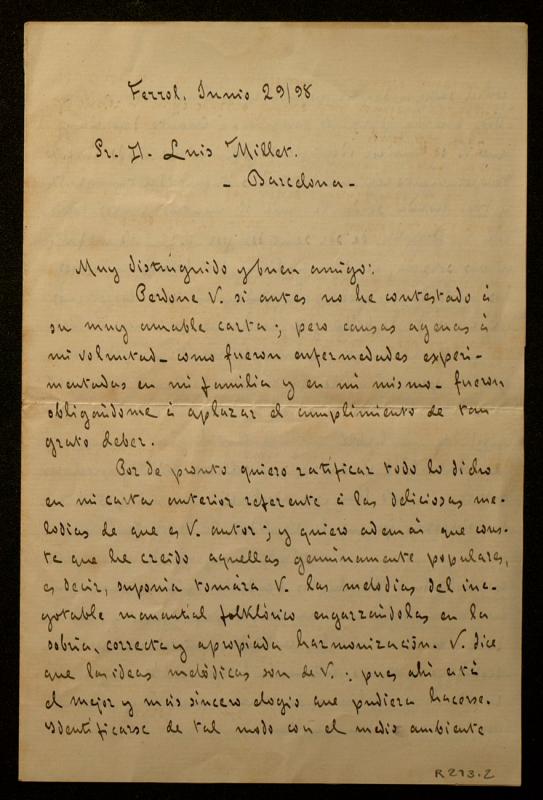 Ferrol, Junio 29/98
Sr. D. Luis Millet.
- Barcelona -
Muy distinguido y buen amigo:
Perdone V. si antes no he contestado á
su muy amable carta; pero causas agenas á
mi voluntad - como fueron enfermedades experi-
mentadas en mi familia y en mi mismo - fueron
obligándome á aplazar el cumplimiento de tan
grato deber.
Por de pronto quiero ratificar todo lo dicho
en mi carta anterior referente á las deliciosas me-
lodias de que es V. autor; y quiero además que cons-
te que he creido aquellas genuinamente populares,
es decir, suponia tomára V. las melodias del ina-
gotable manantial folklórico engarzándolas en la
sobria, correcta y apropiada harmonización. V. dice
que las ideas melódicas son de V.: pues ahi está
el mejor y más sincero elogio que pudiera hacerse.
Identificarse de tal modo con el medio ambiente
R 273.2